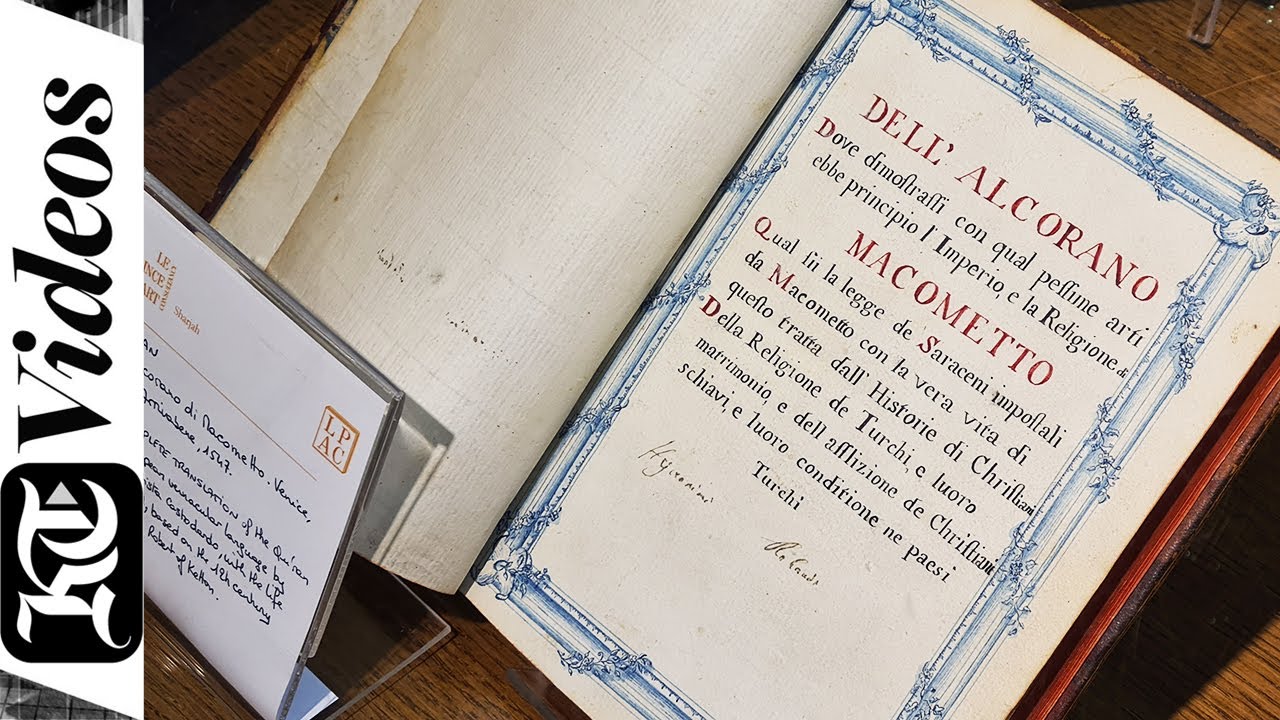 Videos
KT
LE
INCE
ART
CONSERVATION
Sharjah
LP
AC
AN
corano di Macometto. Venice,
Arrivabene, 1547.
PLETE TRANSLATION of the Qu'ran
opean vernacular language by
ista Castrodardo, with the life
, based on the 12th century
Robert of Ketton.
DELL' ALCORANO
Dove dimoſtraſſi con qual peſſime arti
ebbe principio l'Imperio, e la Religione di
MACOMETTO
Qual ſii la legge de Saraceni impoſtali
da Macometto con la vera vita di
queſto tratta dall' Hiſtorie di Chriſtiani
Della Religione de Turchi, e luoro
matrimonio, e dell aſſlizione de Chriſtiani
schiavi, e luoro conditione ne paesi
Turchi